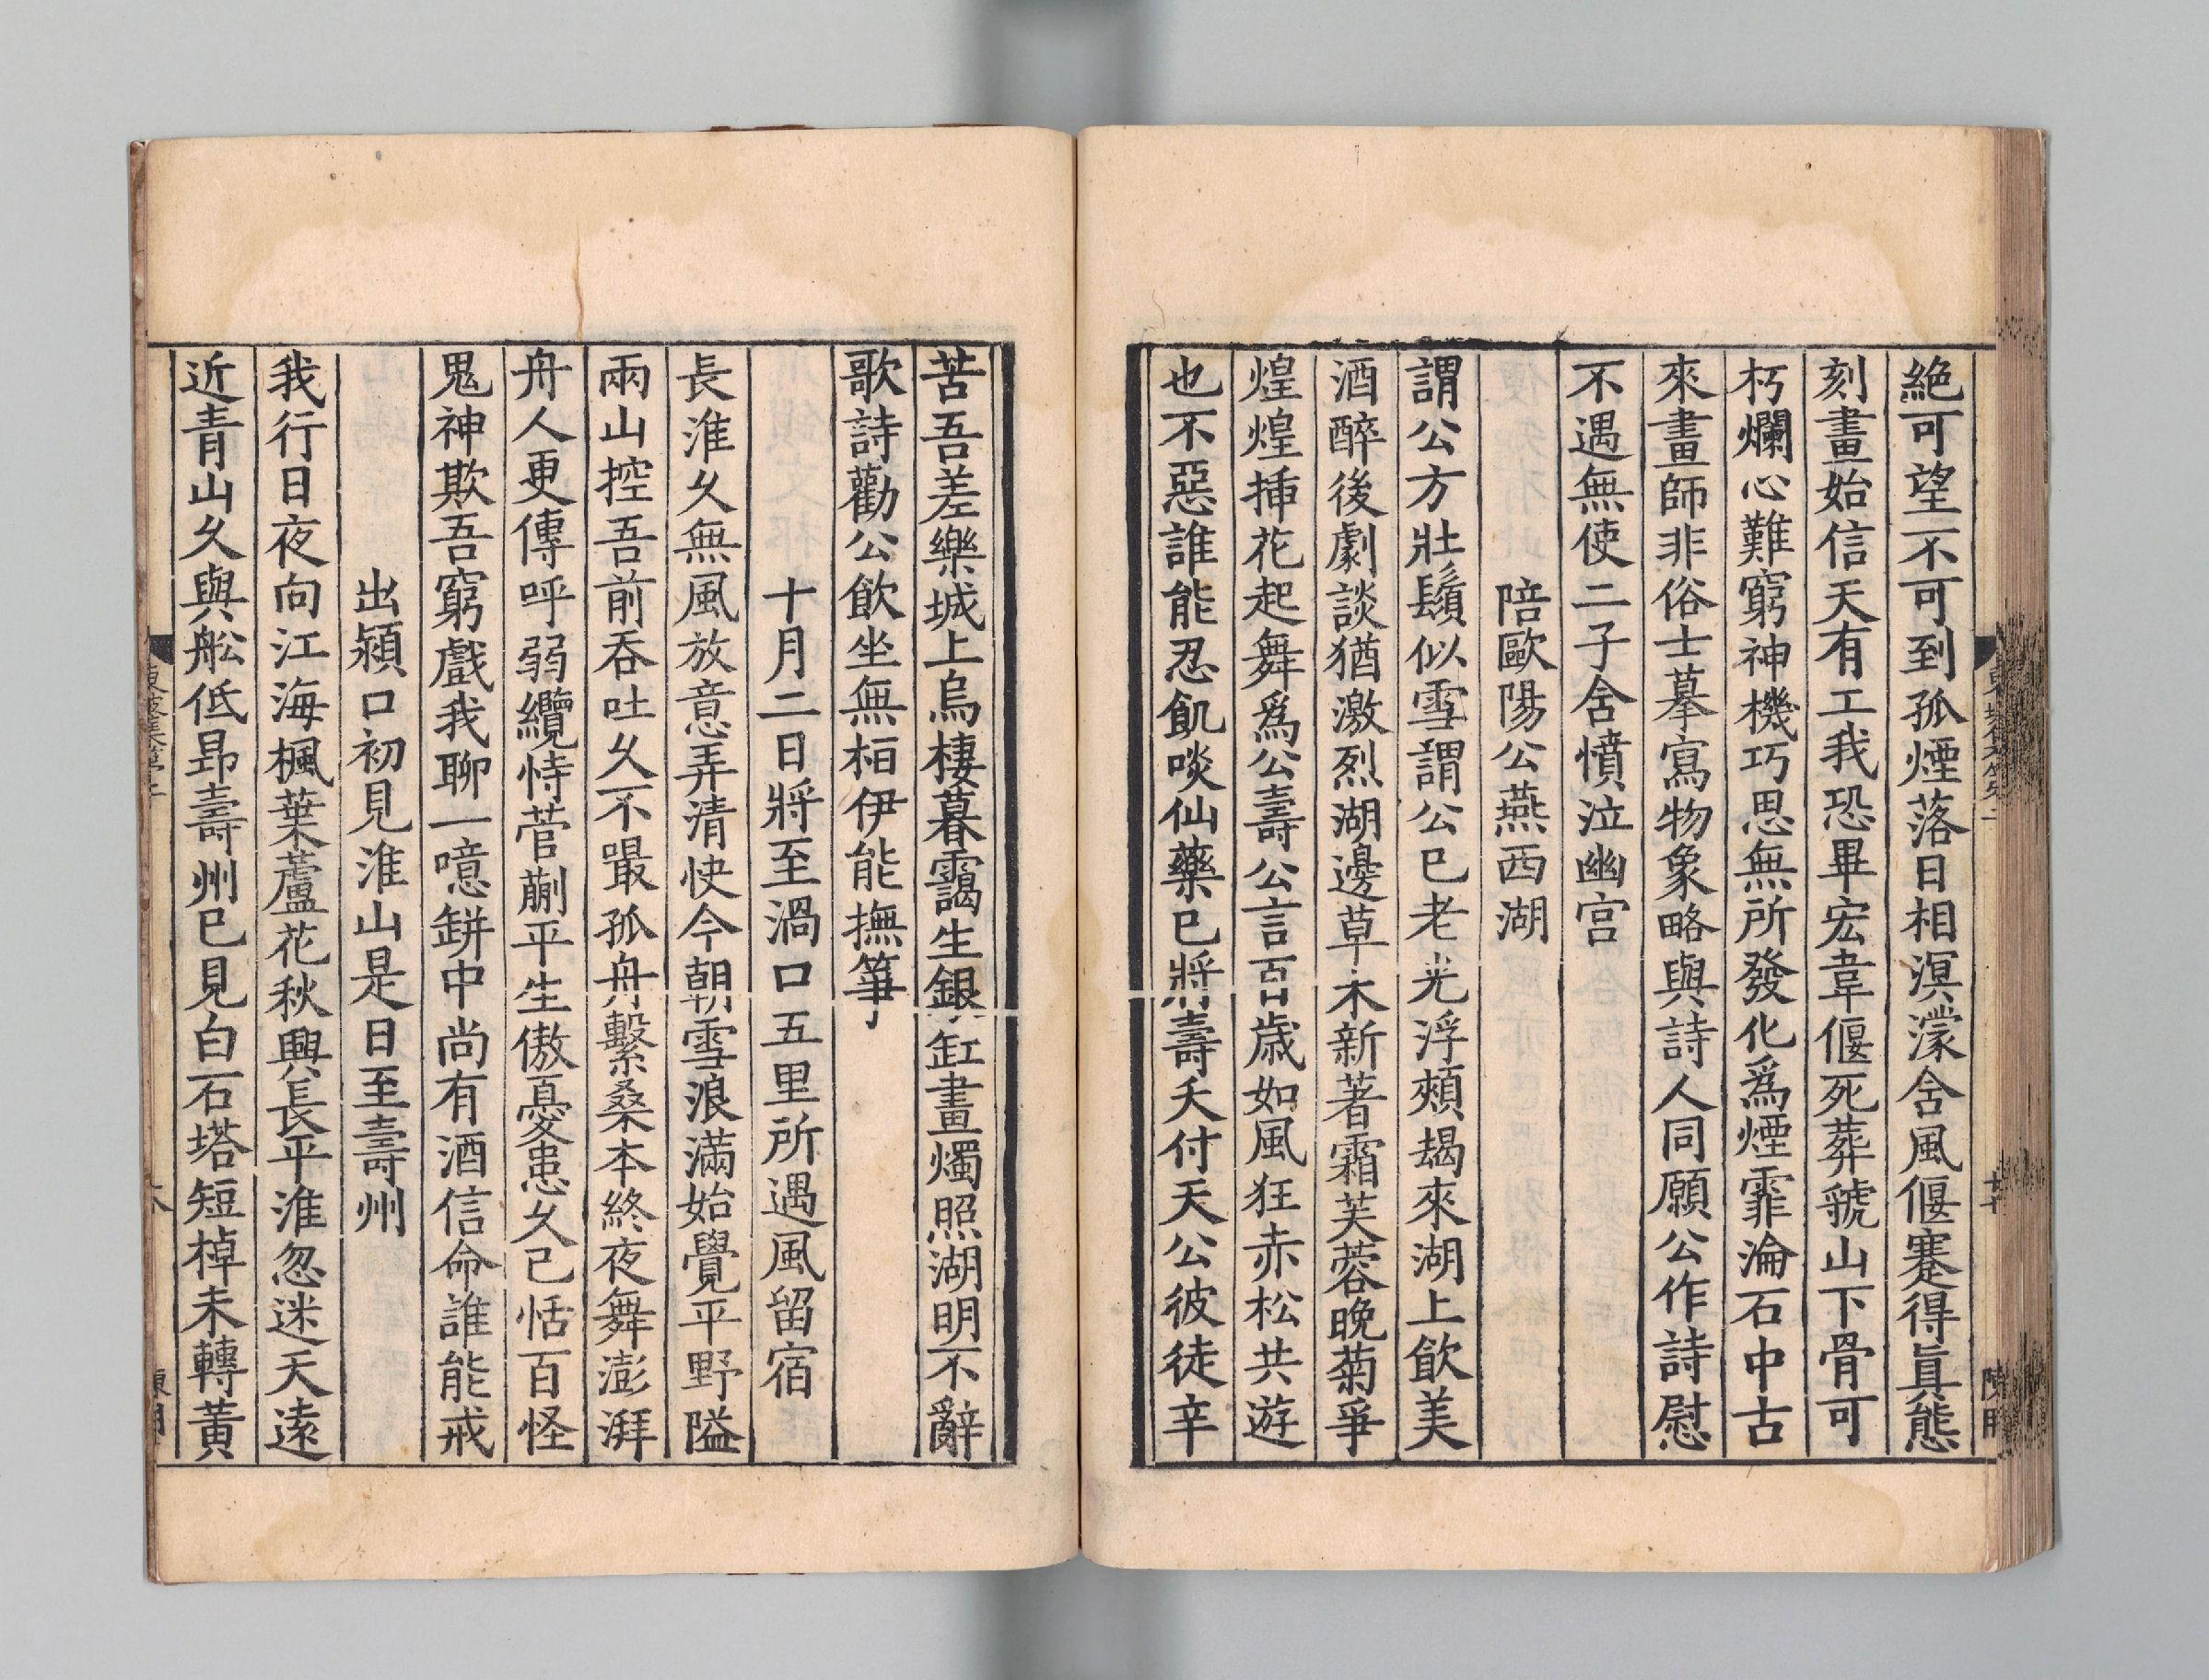 絶可望不可到孤煙落日相溟濛含風偃蹇得眞態
刻畫始信天有工我恐畢宏韋偃死葬虢山下骨可
朽爛心難窮神機巧思無所發化爲煙霏淪石中古
來畫師非俗士摹寫物象略與詩人同願公作詩慰
不遇無使二子含憤泣幽宮
陪歐陽公燕西湖
謂公方壯鬚似雪謂公已老光浮頰朅來湖上飲美
酒醉後劇談猶激烈湖邊草木新著霜芙蓉晚菊爭
煌煌揷花起舞爲公壽公言百歳如風狂赤松共遊
也不惡誰能忍飢啖仙藥已將壽夭付天公彼徒辛
苦吾差樂城上烏棲暮靄生銀缸畫燭照湖明不辭
歌詩勸公飲坐無桓伊能撫箏
十月二日將至渦口五里所遇風留宿
長淮久無風放意弄清快今朝雪浪滿始覺平野隘
兩山控吾前吞吐久不嘬孤舟繫桑本終夜舞澎湃
舟人更傳呼弱纜恃菅蒯平生傲憂患久已恬百怪
鬼神欺吾窮戲我聊一噫缾中尚有酒信命誰能戒
出潁口初見淮山是日至壽州
我行日夜向江海楓葉蘆花秋興長平淮忽迷天遠
近青山久與舩低昂壽州已見白石塔短棹未轉黃